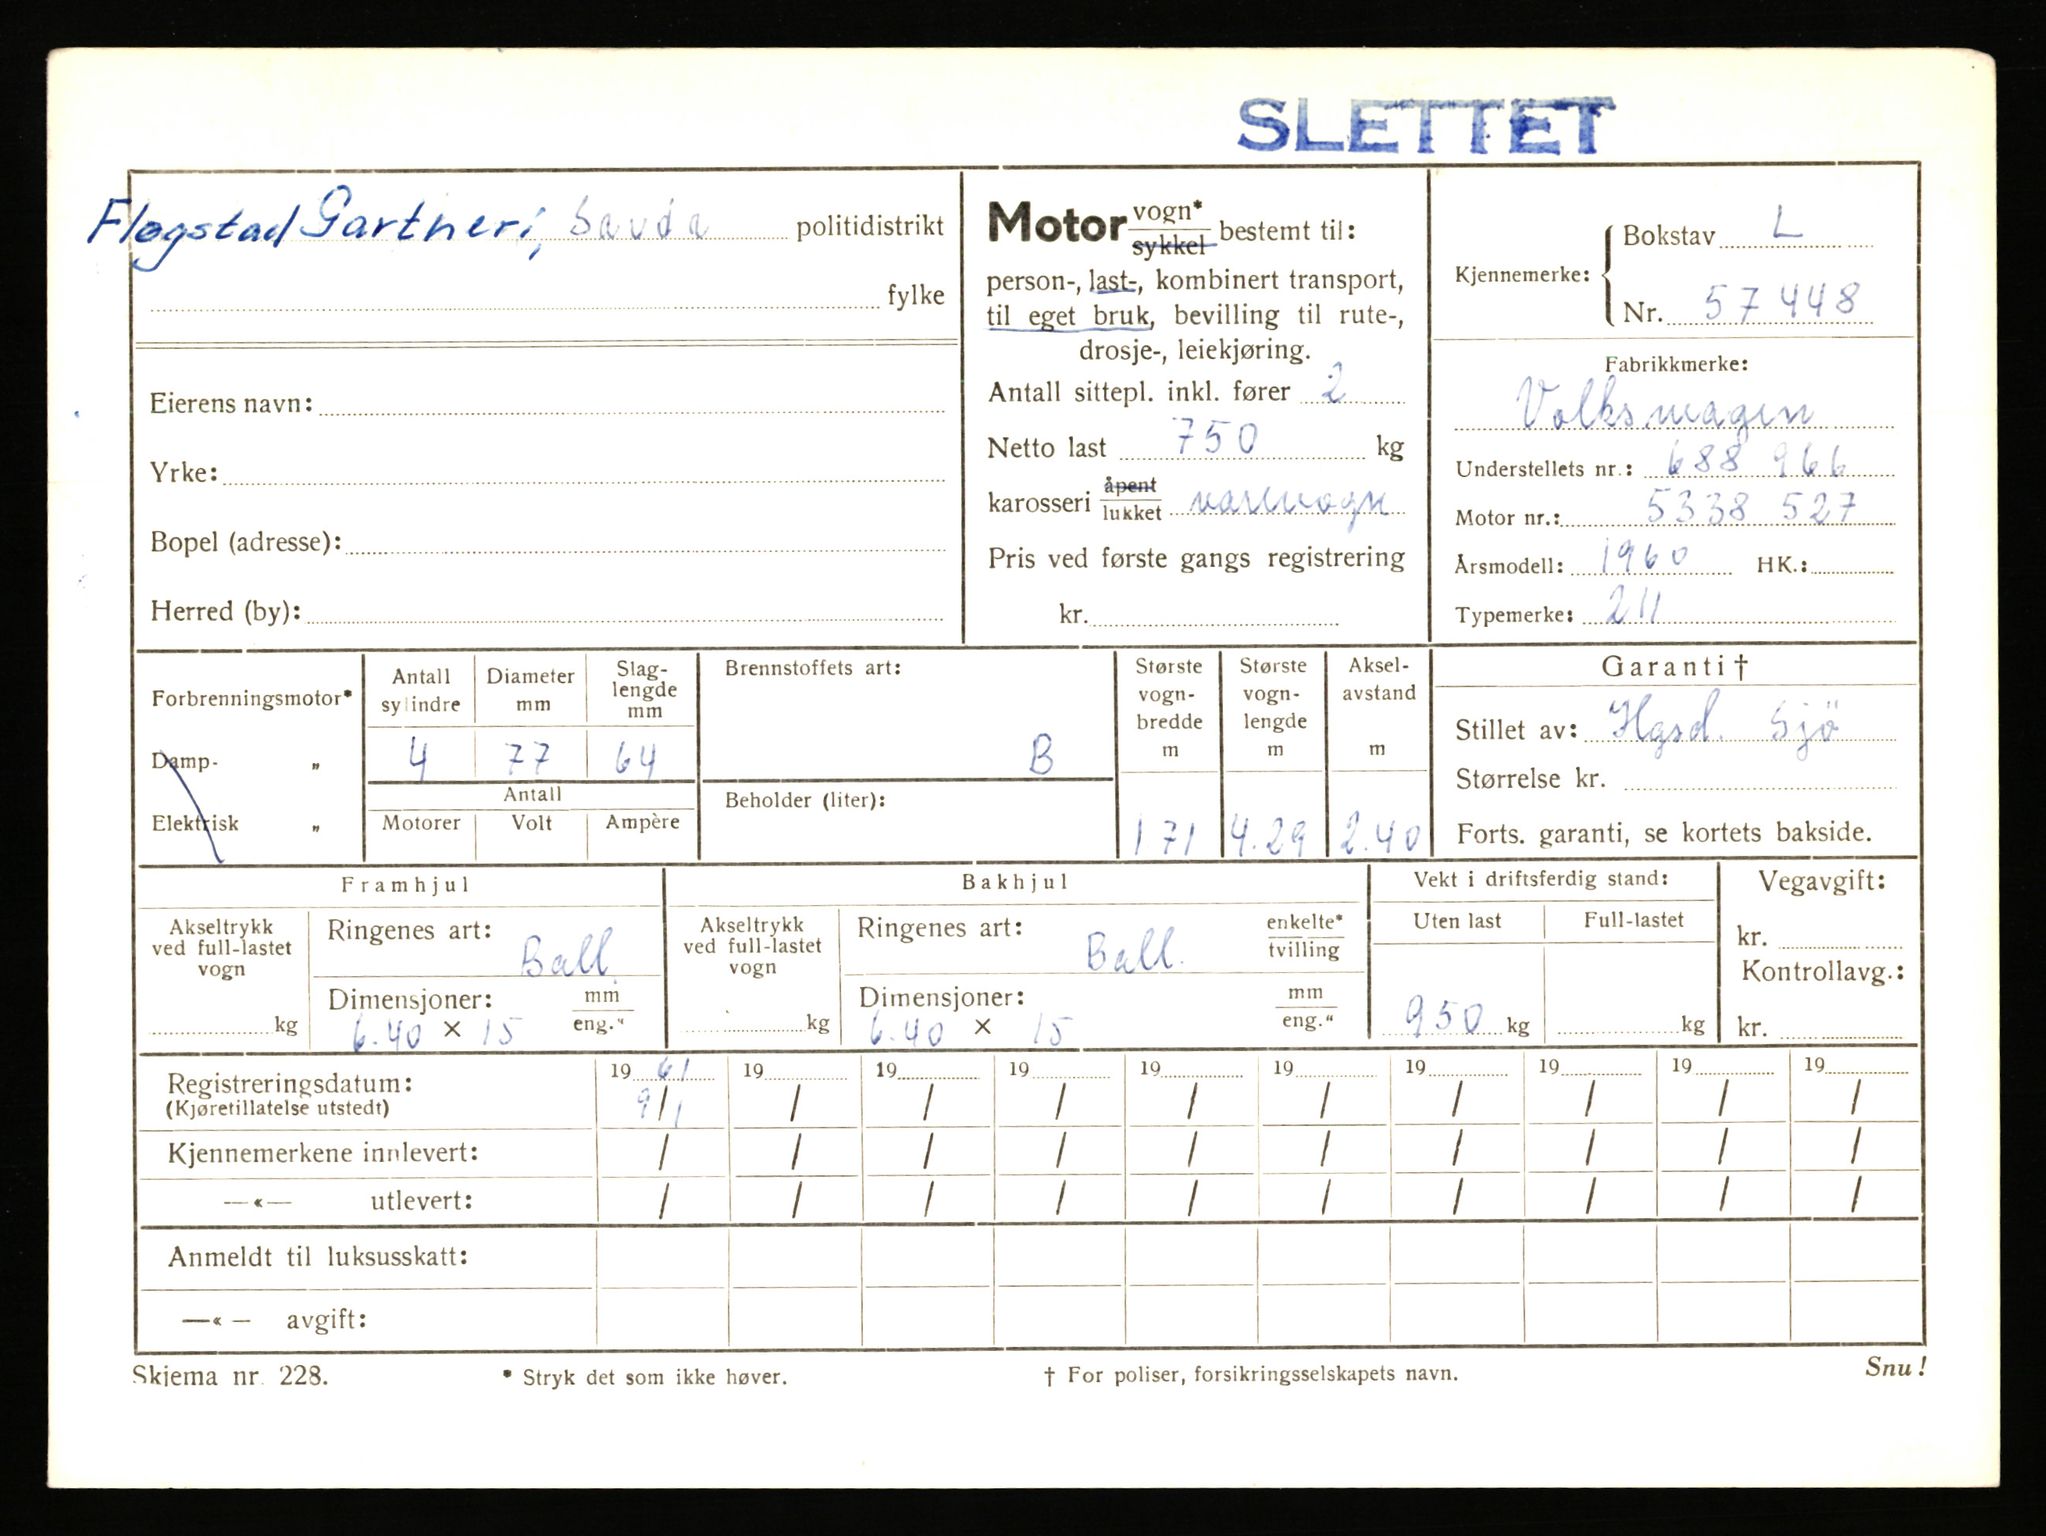 SLETTET
Fløgstad Gartneri, Sauda politidistrikt
fylke
Eierens navn:
Yrke:
Bopel (adresse):
Herred (by):
Motor vogn* sykkel bestemt til:
person-, last-, kombinert transport,
til eget bruk, bevilling til rute-,
drosje-, leiekjøring.
Antall sittepl. inkl. fører 2
Netto last 750 kg
karosseri åpent lukket varevogn
Pris ved første gangs registrering
kr.
Kjennemerke: Bokstav L
Nr. 57448
Fabrikkmerke:
Volkswagen
Understellets nr.: 688 966
Motor nr.: 5338 527
Årsmodell: 1960 HK.:
Typemerke: 211
Forbrenningsmotor*
Damp- „
Elektrisk „
Antall sylindre
Diameter mm
Slag-lengde mm
4 77 64
Antall
Motorer Volt Ampère
Brennstoffets art:
B
Beholder (liter):
Største vogn-bredde m
171
Største vogn-lengde m
4.29
Aksel-avstand m
2.40
Garanti †
Stillet av: Hgsd. Sjö
Størrelse kr.
Forts. garanti, se kortets bakside.
Framhjul
Akseltrykk ved full-lastet vogn
kg
Ringenes art:
Ball
Dimensjoner: mm eng."
6.40 × 15
Bakhjul
Akseltrykk ved full-lastet vogn
kg
Ringenes art: enkelte* tvilling
Ball.
Dimensjoner: mm eng."
6.40 × 15
Vekt i driftsferdig stand:
Uten last Full-lastet
950 kg kg
Vegavgift:
kr.
Kontrollavg.:
kr.
Registreringsdatum: 19 61 19 19 19 19 19 19 19 19 19
(Kjøretillatelse utstedt) 9/1 / / / / / / / / /
Kjennemerkene innlevert: / / / / / / / / / /
—«— utlevert: / / / / / / / / / /
Anmeldt til luksusskatt:
—«— avgift:
Skjema nr. 228. * Stryk det som ikke høver. † For poliser, forsikringsselskapets navn. Snu!